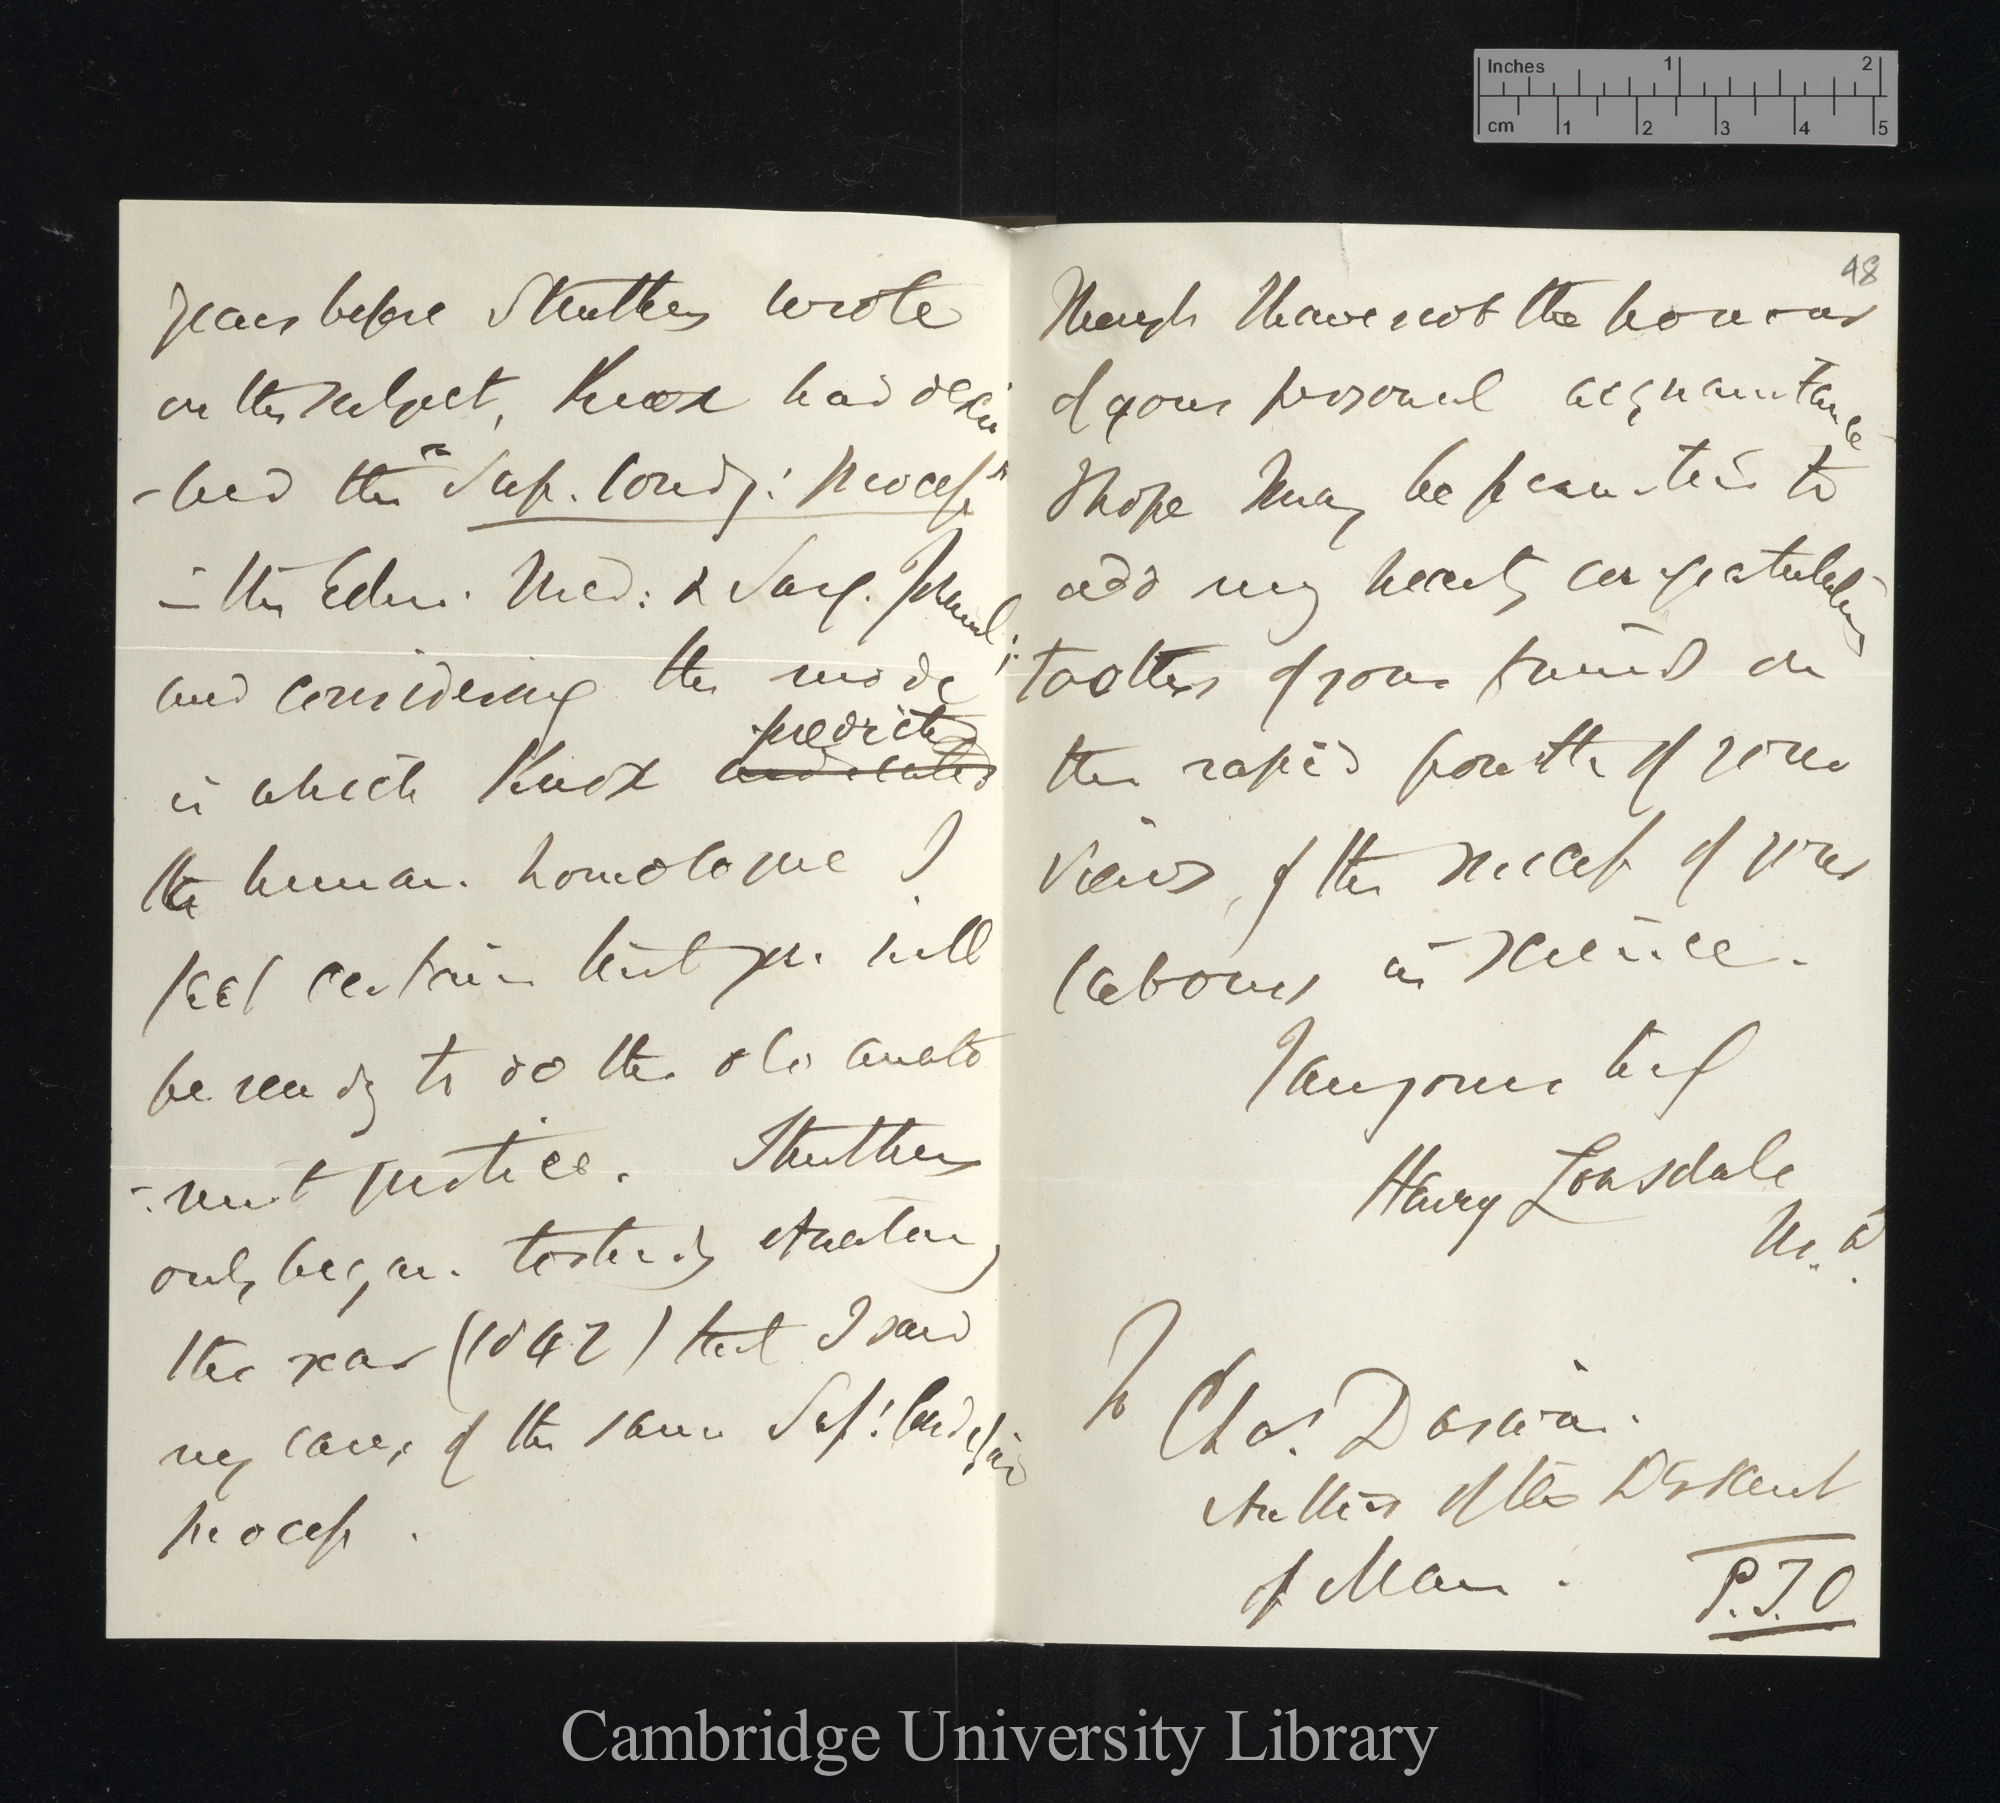 years before Struthers wrote
on the subject, Knox had descri
-bed the Sup. Condy: Process
in the Edin. Med: & Surg. Journal;
and considering the mode
in which Knox predicted
indicated
the human homologue I
feel certain that you will
be ready to do the old anato
-mist justice. Struthers
only began to study Anatomy
the year (1842) that I saw
my case, of the same Sup! Condyloid
process.
48
Though I have not the honour
of your personal acquaintance
I hope I may be permitted to
add my hearty congratulations
to others of your friends on
the rapid growth of your
views, & the success of your
labours in science.
I am yours truly
Henry Lonsdale
M.D.
To
Chas. Darwin.
Author of the Descent
of Man.
P.T.O
Inches 1 2
cm 1 2 3 4 5
Cambridge University Library